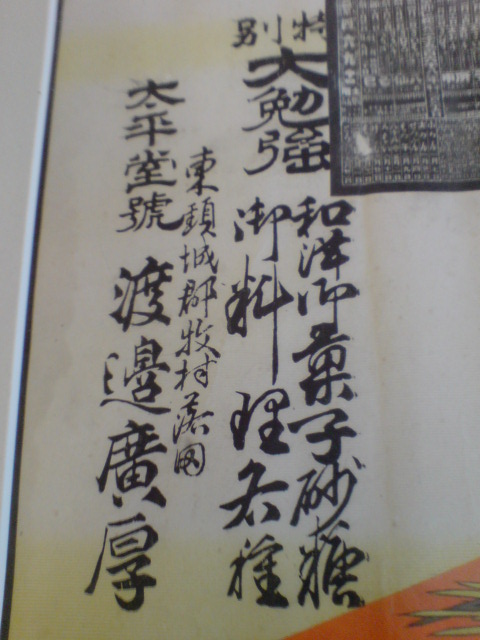 特別
大勉強
和洋御菓子砂糖
御料理各種
東頸城郡牧村落田
太平堂號
渡邉廣厚